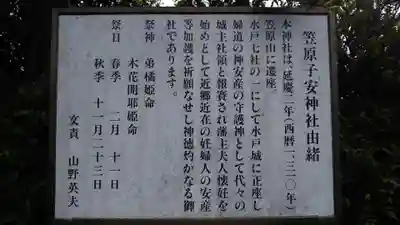 笠原子安神社由緒
本神社は、延慶三年(西暦一、三一〇年)
笠原山に遷座。
水戸七社の一にして水戸城に正座し
婦道の神安産の守護神として代々の
城主社領と報賽され藩主夫人懐妊を
始めとして近郷近在の妊婦人の安産
等加護を祈願なせし神徳灼かなる御
社であります。
祭神 弟橘姫命
木花開耶姫命
祭日 春季 二月 十一日
秋季 十一月二十三日
文責 山野英夫